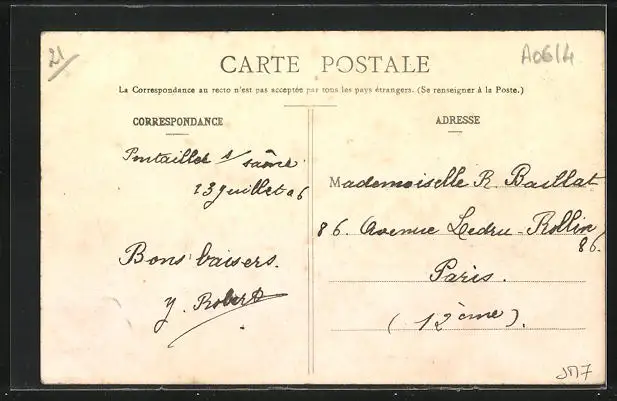 21
A0614
CARTE POSTALE
La Correspondance au recto n'est pas acceptée par tous les pays étrangers. (Se renseigner à la Poste.)
CORRESPONDANCE
Pontailler s/ saône
23 Juillet 06
Bons baisers.
Y. Robert
ADRESSE
Mademoiselle R. Baillat
86. Avenue Ledru-Rollin
86.
Paris.
(12ème).